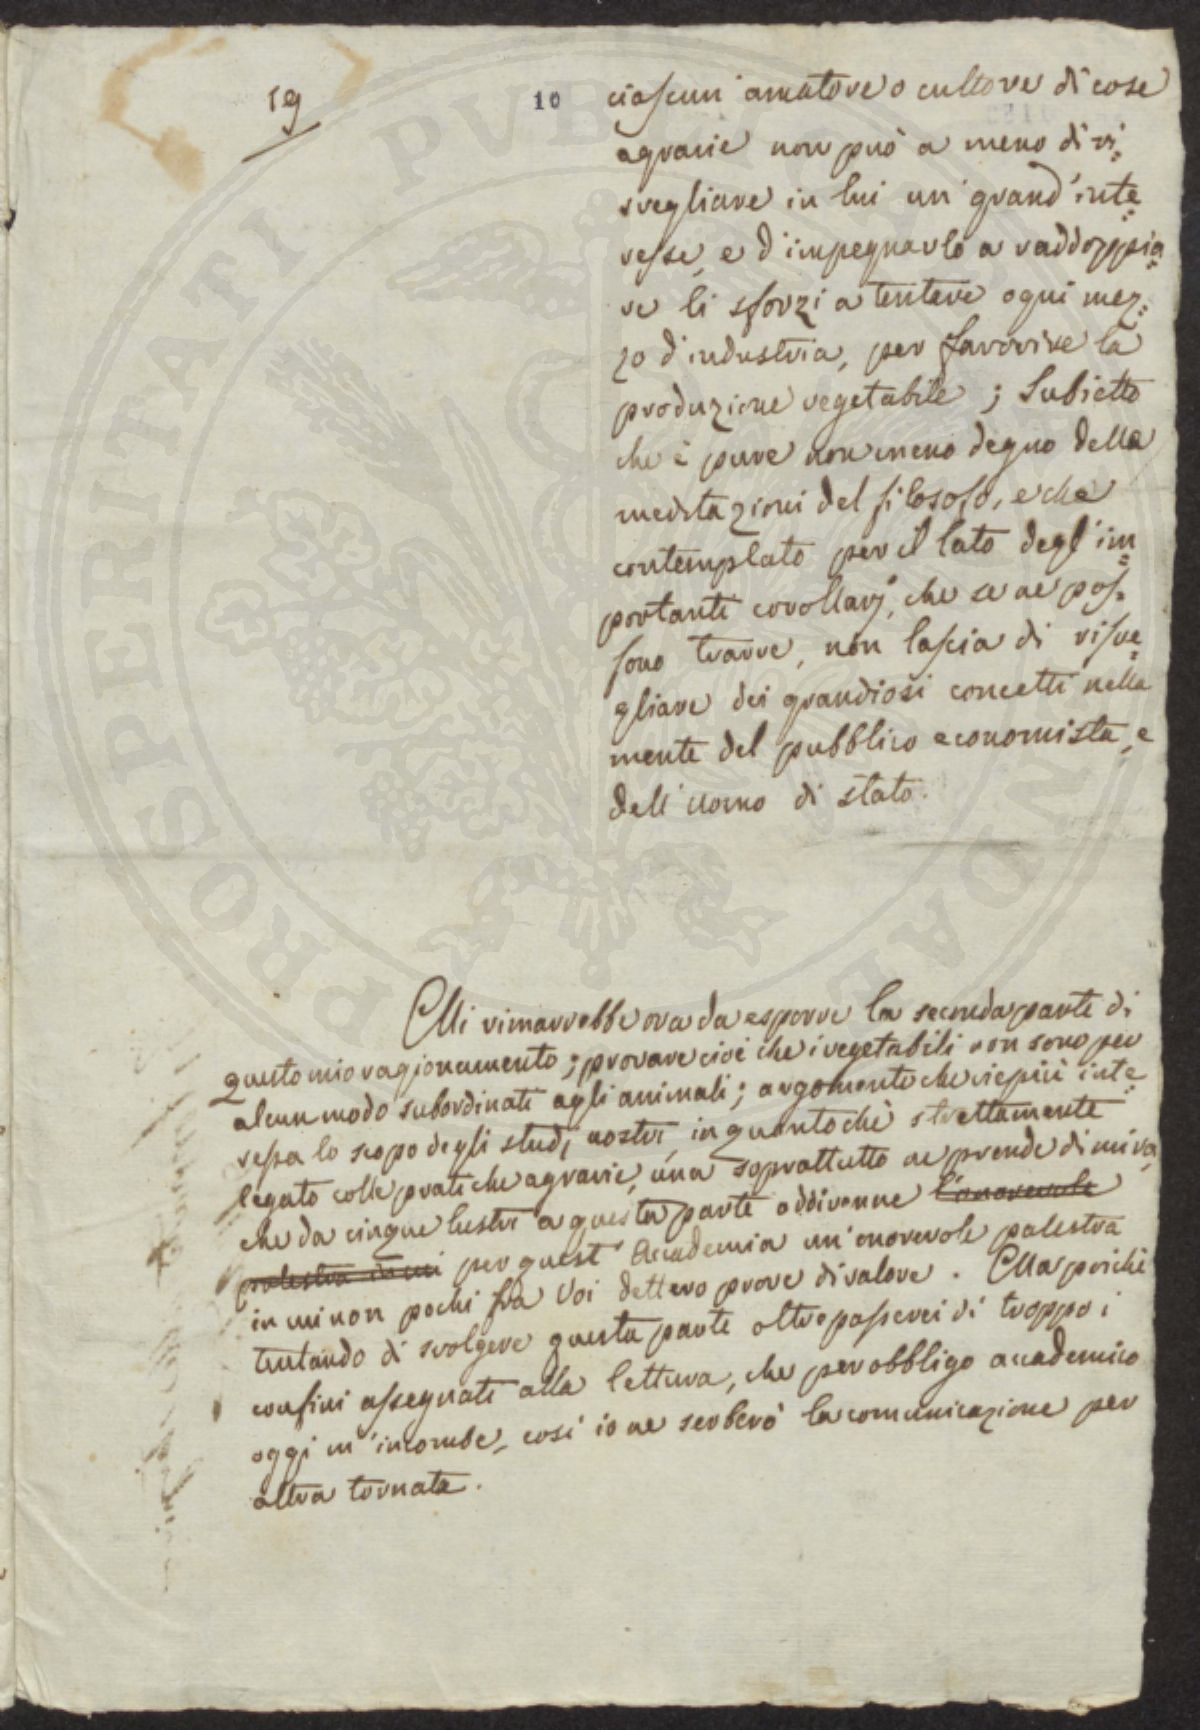 19
10
ciascun amatore o cultore di cose
agrarie non può a meno di ri=
svegliare in lui un grand'inte=
resse, e d'impegnarlo a raddoppia=
re li sforzi a tentare ogni mez=
zo d'industria, per favorire la
produzione vegetabile; Subietto
che è pure non meno degno della
meditazioni del filosofo, e che
contemplato per il lato degl'im=
portanti corollarj, che se ne pos=
sono trarre, non lascia di risve=
gliare dei grandiosi concetti nella
mente del pubblico economista, e
dell'uomo di stato.
Mi rimarrebbe ora da esporre la seconda parte di
questo mio ragionamento; provare cioè che i vegetabili non sono per
alcun modo subordinati agli animali; argomento che viepiù inte=
ressa lo scopo degli studj nostri, in quanto chè strettamente
legato colle pratiche agrarie, una soprattutto ne prende di mira,
che da cinque lustri a questa parte addivenne l'onorevole
palestra in cui per quest'Accademia un'onorevole palestra
in cui non pochi fra Voi dettero prove di valore. Ma poichè
tentando di svolgere questa parte oltrepasserei di troppo i
confini assegnati alla lettura, che per obbligo accademico
oggi m'incombe, così io ne serberò la comunicazione per
altra tornata.
PROSPERITATI PVBLICAE